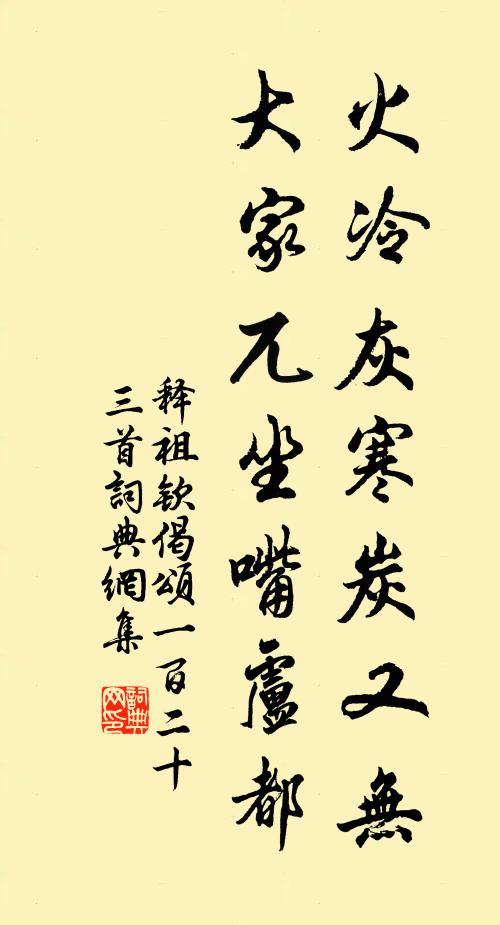 火冷灰寒炭又無
大家兀坐嘴盧都
释祖欽偈頌一百二十
三首詞典網集
詞典网印